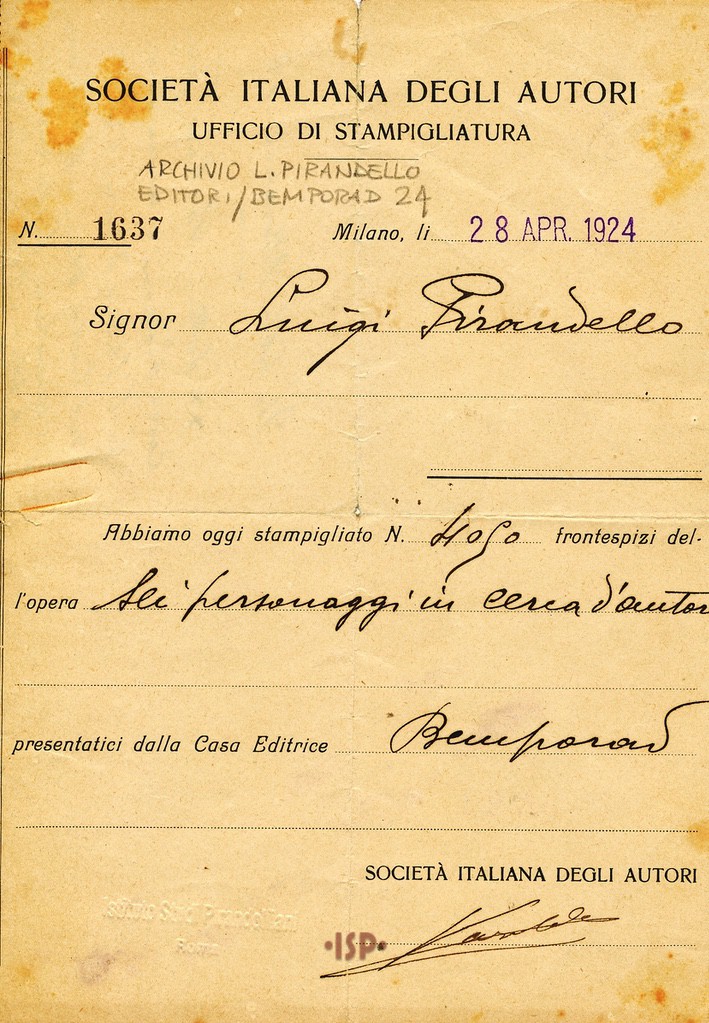 SOCIETÀ ITALIANA DEGLI AUTORI
UFFICIO DI STAMPIGLIATURA
ARCHIVIO L. PIRANDELLO
EDITORI/BEMPORAD 24
N. 1637 Milano, li 28 APR. 1924
Signor Luigi Pirandello
Abbiamo oggi stampigliato N. 4050 frontespizi del-
l'opera Sei personaggi in cerca d'autor
presentatici dalla Casa Editrice Bemporad
SOCIETÀ ITALIANA DEGLI AUTORI
Istituto Studi Pirandelliani
Roma
ISP